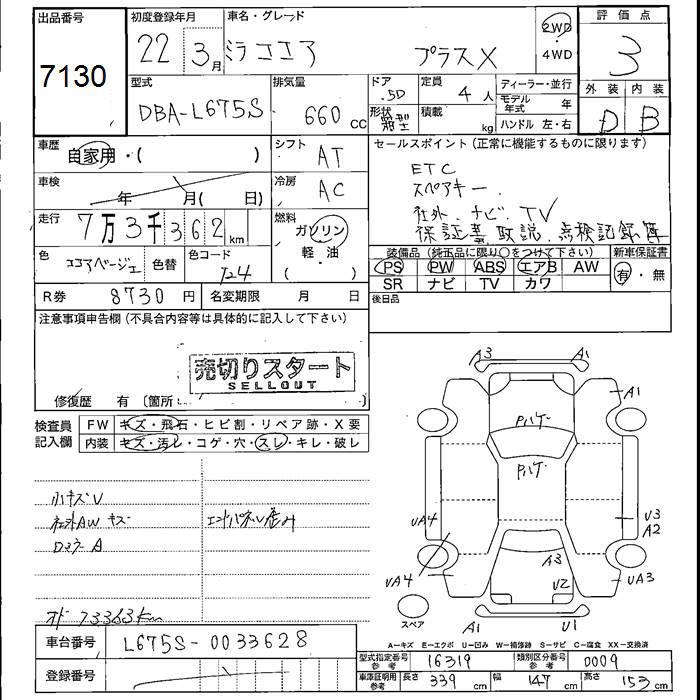 出品番号 初度登録年月 車名・グレード 評価点
7130 22年 3月 ミラココア プラスX 2WD・4WD 3
型式 排気量 ドア 5D 定員 4人 ディーラー・並行 外装 内装
DBA-L675S 660cc 形状 箱型 積載 kg モデル年式 年 ハンドル 左・右 D B
車歴 自家用・( ) シフト AT セールスポイント(正常に機能するものに限ります)
ETC
スペアキー
車検 年 月( 日) 冷房 AC
社外.ナビ.TV
走行 7万3千362km 燃料 ガソリン・軽油( )
保証書 取説.点検記録簿
色 ココアベージュ 色替 色コード T24
装備品(純正品に限り○をつけて下さい) 新車保証書
PS PW ABS エアB AW 有・無
SR ナビ TV カワ
R券 8730円 名変期限 月 日 後日品
注意事項申告欄(不具合内容等は具体的に記入して下さい)
売切りスタート
SELLOUT
修復歴 有[箇所: ]
検査員記入欄 FW キズ・飛石・ヒビ割・リペア跡・X要
内装 キズ・汚レ・コゲ・穴・スレ・キレ・破レ
小キズV
社外AW キズ エンドパネル歪み
Dミラー A
オド 73363km
A3 A1
A1
Pハゲ
Pハゲ
UA4 U3
A2
A3
UA4 U2 UA3
スペア
A1 U1
A-キズ E-エクボ U-凹み W-補修跡 S-サビ C-腐食 XX-交換済
車台番号 L675S-0033628
型式指定番号 参考 16319 類別区分番号 参考 0009
登録番号
車庫証明用 参考 長さ 339cm 幅 147cm 高さ 153cm